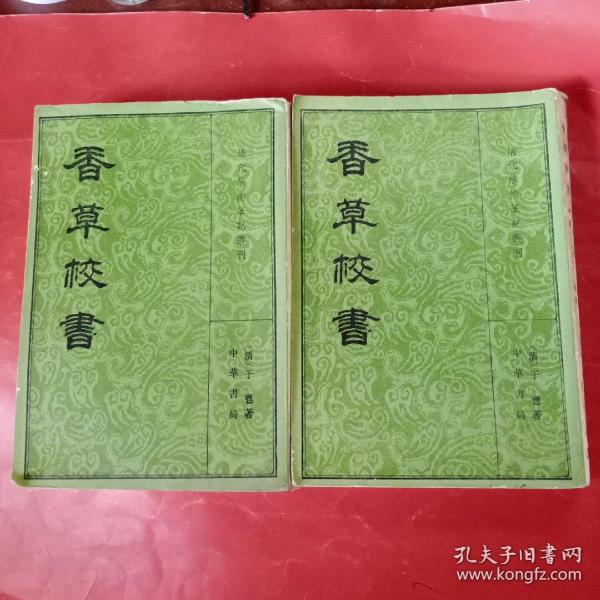 香草校書
清代學術筆記叢刊
〔清〕于鬯著
中華書局
香草校書
清代學術筆記叢刊
〔清〕于鬯著
中華書局
孔夫子旧书网
www.kongfz.com